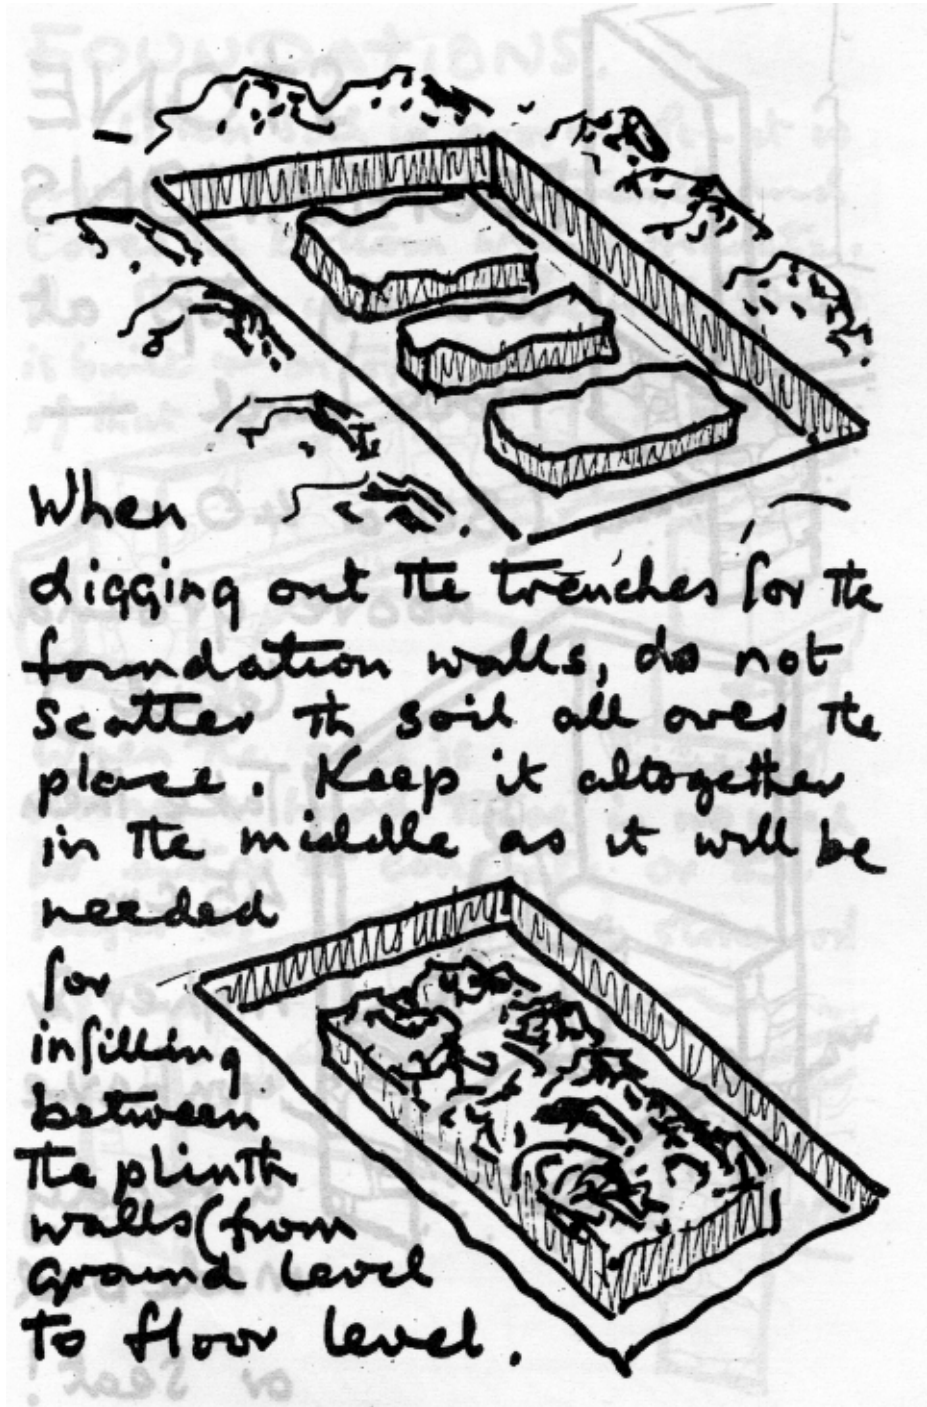 When
digging out the trenches for the
foundation walls, do not
scatter th soil all over the
place. Keep it altogether
in the middle as it will be
needed
for
infilling
between
the plinth
walls (from
ground level
to floor level.